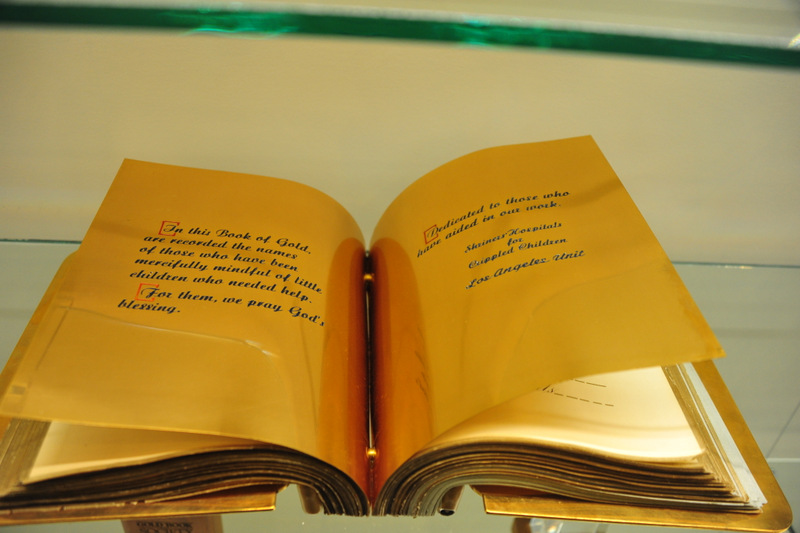 In this Book of Gold,
are recorded the names
of those who have been
mercifully mindful of little
children who needed help.
For them, we pray God's
blessing.
Dedicated to those who
have aided in our work.
Shriners Hospitals
for
Crippled Children
Los Angeles Unit
GOLD BOOK